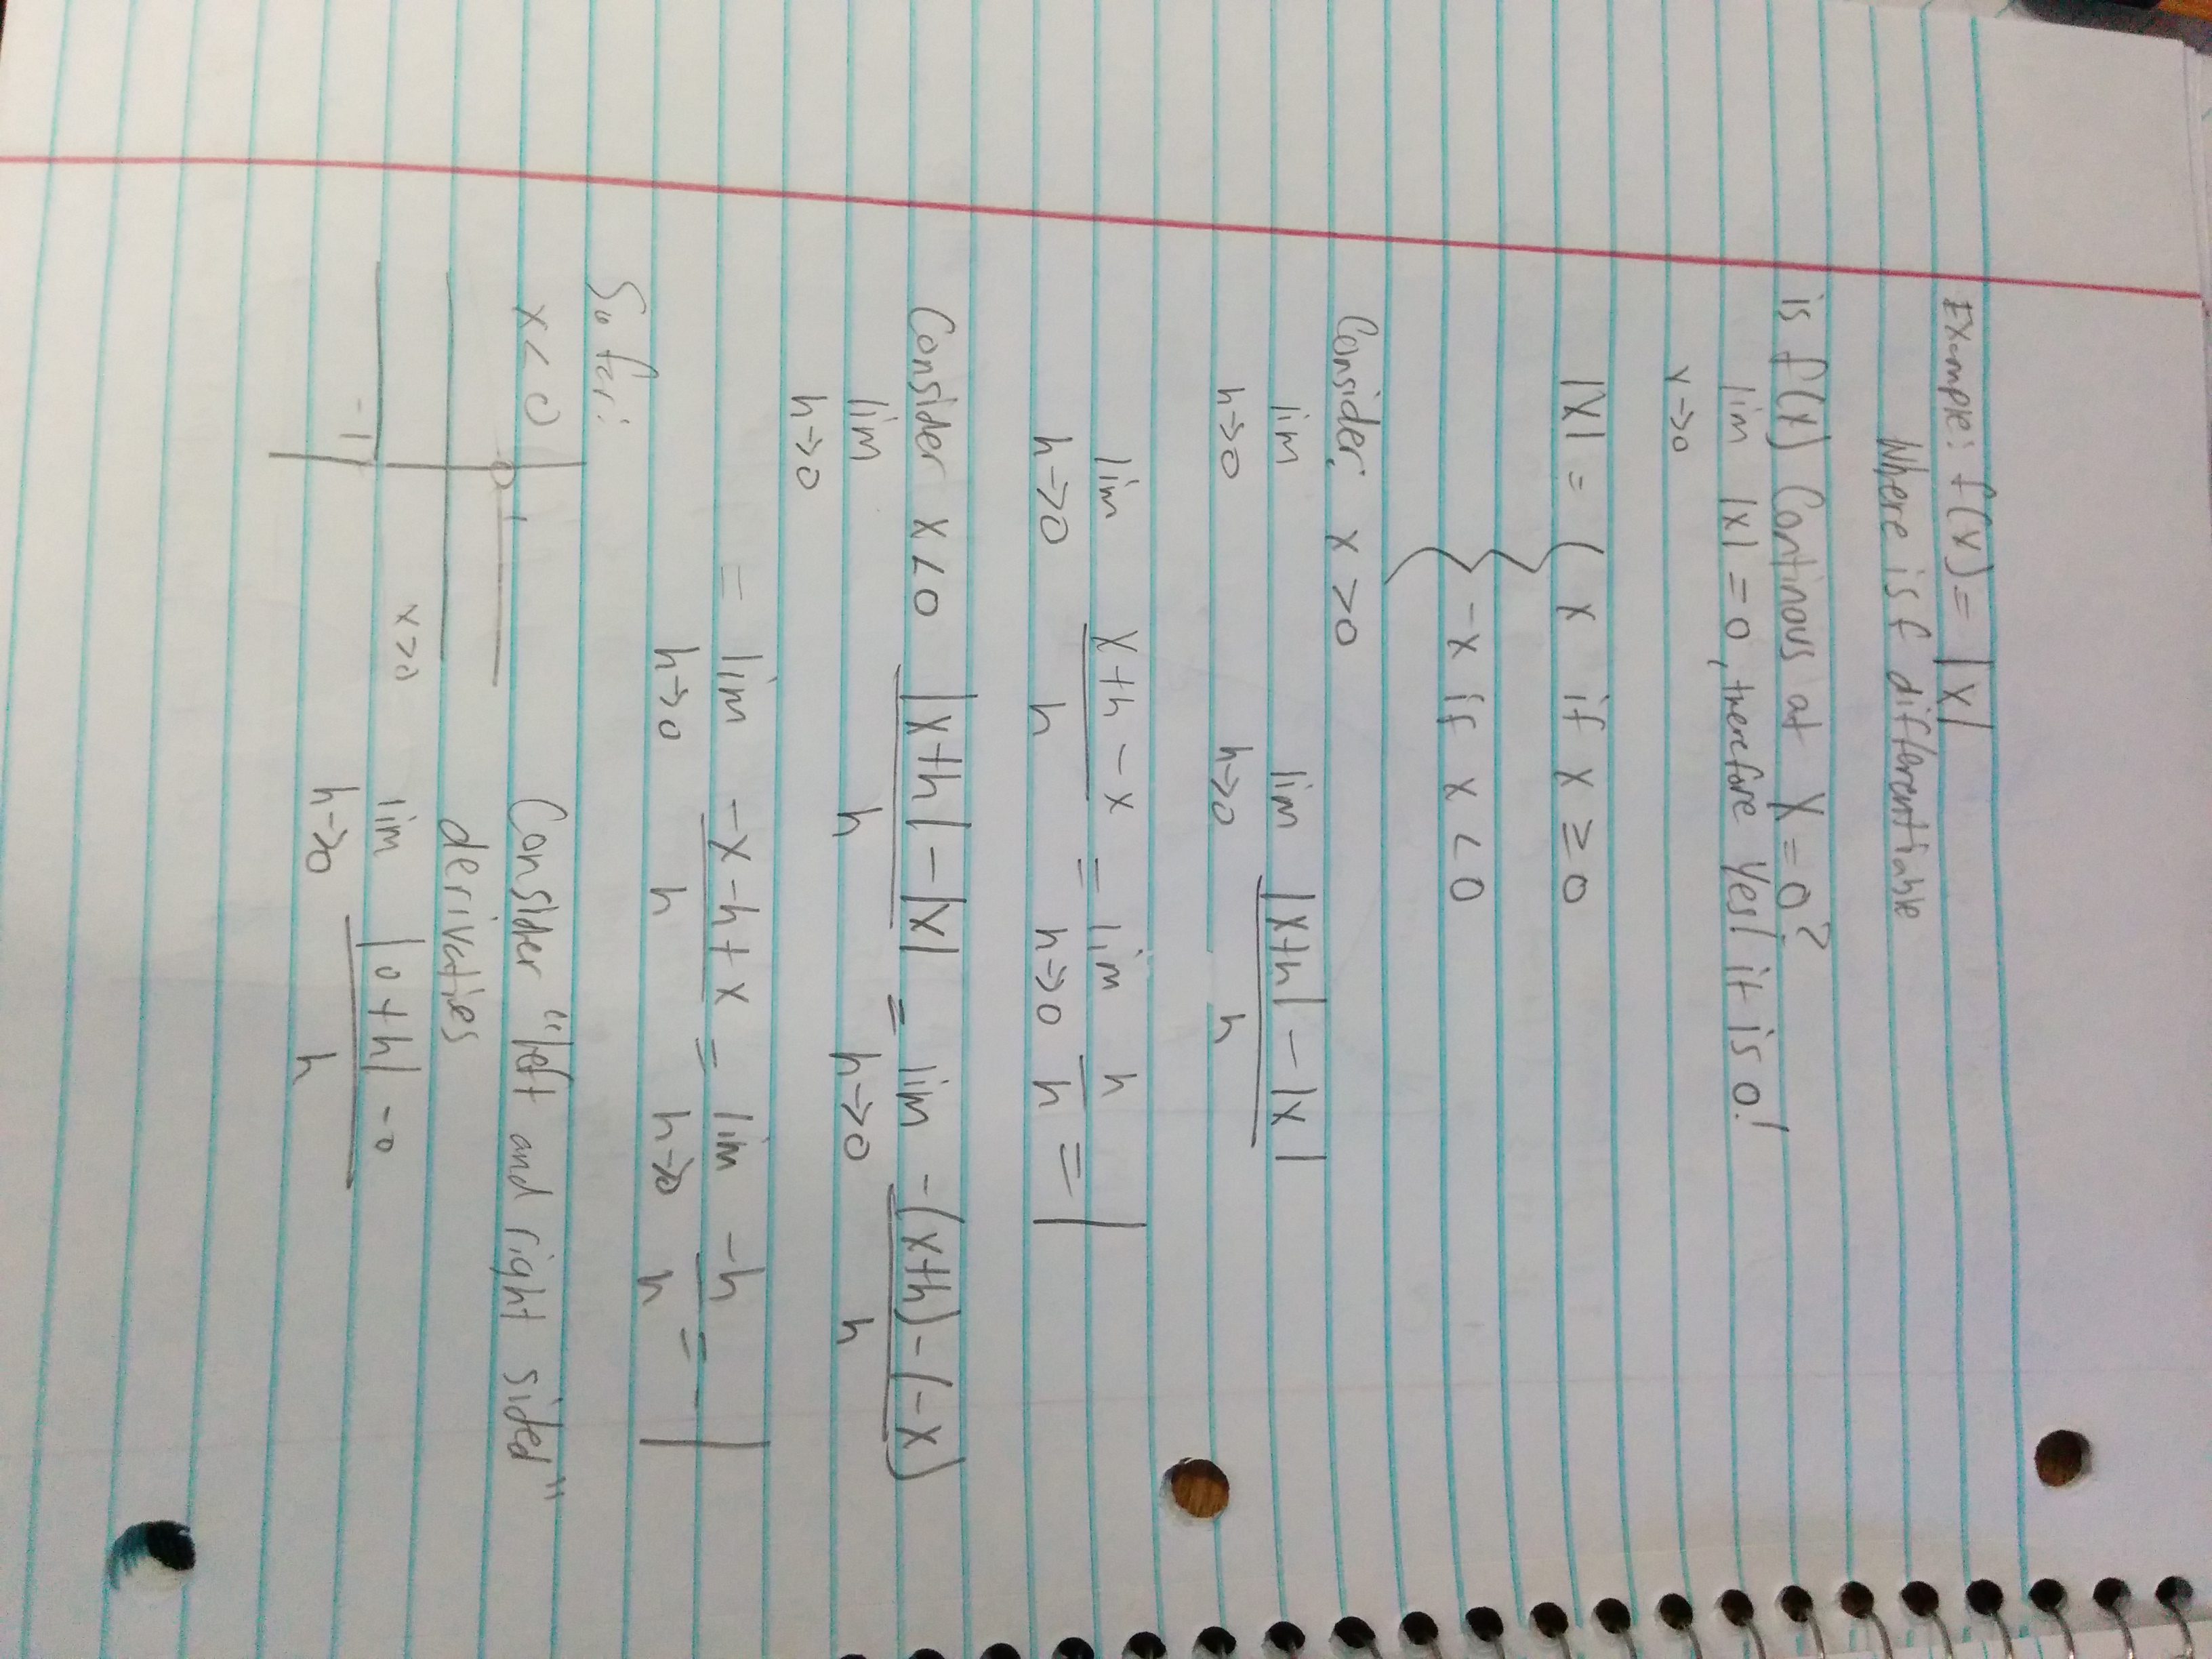 Example: f(x) = |x|
Where is f differentiable
is f(x) Continous at x=0?
lim |x| = 0, therefore Yes! it is 0!
x→0
|x| = { x if x ≥ 0
-x if x < 0
Consider x > 0
lim lim |x+h| - |x|
h→0 h→0 h
lim x+h-x = lim h = 1
h→0 h h→0 h
Consider x < 0
lim |x+h| - |x| = lim -(x+h) - (-x)
h→0 h h→0 h
= lim -x-h+x = lim -h = -1
h→0 h h→0 h
So far:
x < 0 Consider "left and right sided"
1
derivaties
x>0
-1
lim |0+h| - 0
h→0 h